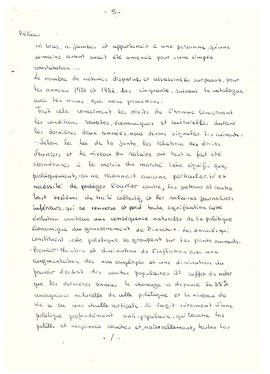 - 5 -
ni bras, ni jambes et appartenait à une personne, qu'une
semaine avant avait été amenée pour une simple
constatation...
Le nombre de victimes disparues et assassinées surpasse, pour
les années 1981 et 1982, les cinquante, suivant le catalogue
avec les noms que nous possédons.
Tout cela concernant les droits de l'homme concernant
les conditions sociales, économiques et culturelles, durant
les dernières deux années, nous devons signaler les suivants:
- Selon la loi de la Junte, les relations des droits
d'ouvriers, et le niveau du salaire ont tout à fait été
abandonnés à la merci du marché. Cela signifie que,
pratiquement, on ne reconnait aucune particularité et
nécessité de protéger l'ouvrier contre, les patrons et contre
tout système de trail collectif, et les salaires journaliers
inférieurs, qui se renverse et perd toute signification. Cette
évolution constitue une conséquence naturelle de la politique
économique du gouvernement de Pinochet. Les données qui
constituent cette politique se groupent sur les points suivants:
diminution de l'inflation avec une
augmentation des non employés et une diminution du
pouvoir d'achat des couches populaires. Il suffit de noter
que les dernières années le chomage a dépassé le 35%
conséquence naturelle de cette politique et le niveau de
vie a eu une chutte verticale. Il s'agit récemment d'une
politique profondément anti-populaire, qui touche les
petites et moyennes couches et, naturellement, toutes les
./.